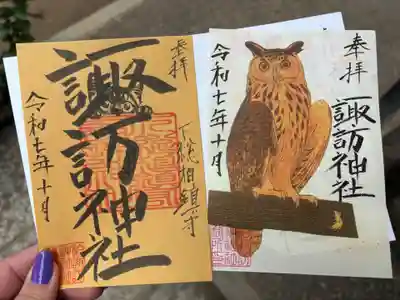 奉拝
諏訪神社
下総柏鎮守
令和七年十月
奉拝
諏訪神社
令和七年十月